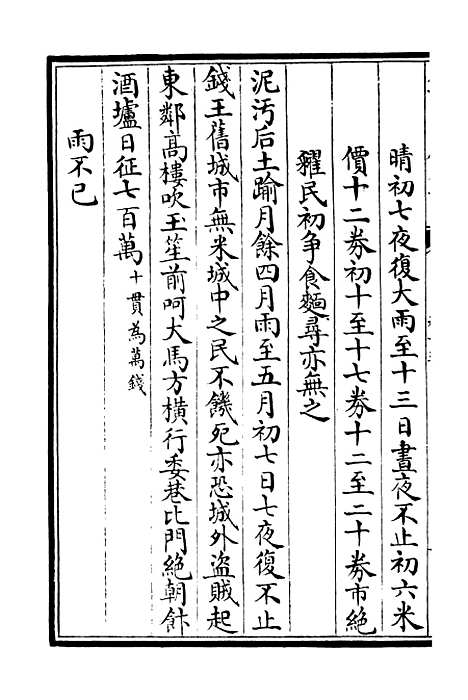 晴初七夜復大雨至十三日晝夜不止初六米
價十二劵初十至十七劵十二至二十劵市絶
糴民初爭食麵尋亦無之
泥汚后土踰月餘四月雨至五月初七日七夜復不止
錢王舊城市無米城中之民不饑死亦恐城外盜賊起
東鄰高樓吹玉笙前呵大馬方横行委巷比門絶朝飰
酒壚日征七百萬十貫為萬錢
雨不已